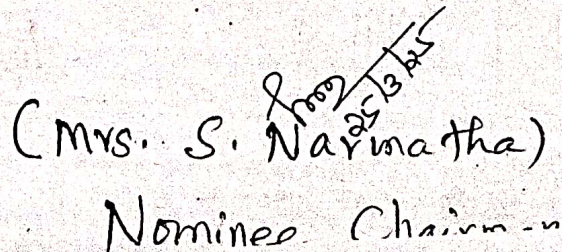 25/3/25
(Mrs. S. Narmatha)
Nominee Chairman